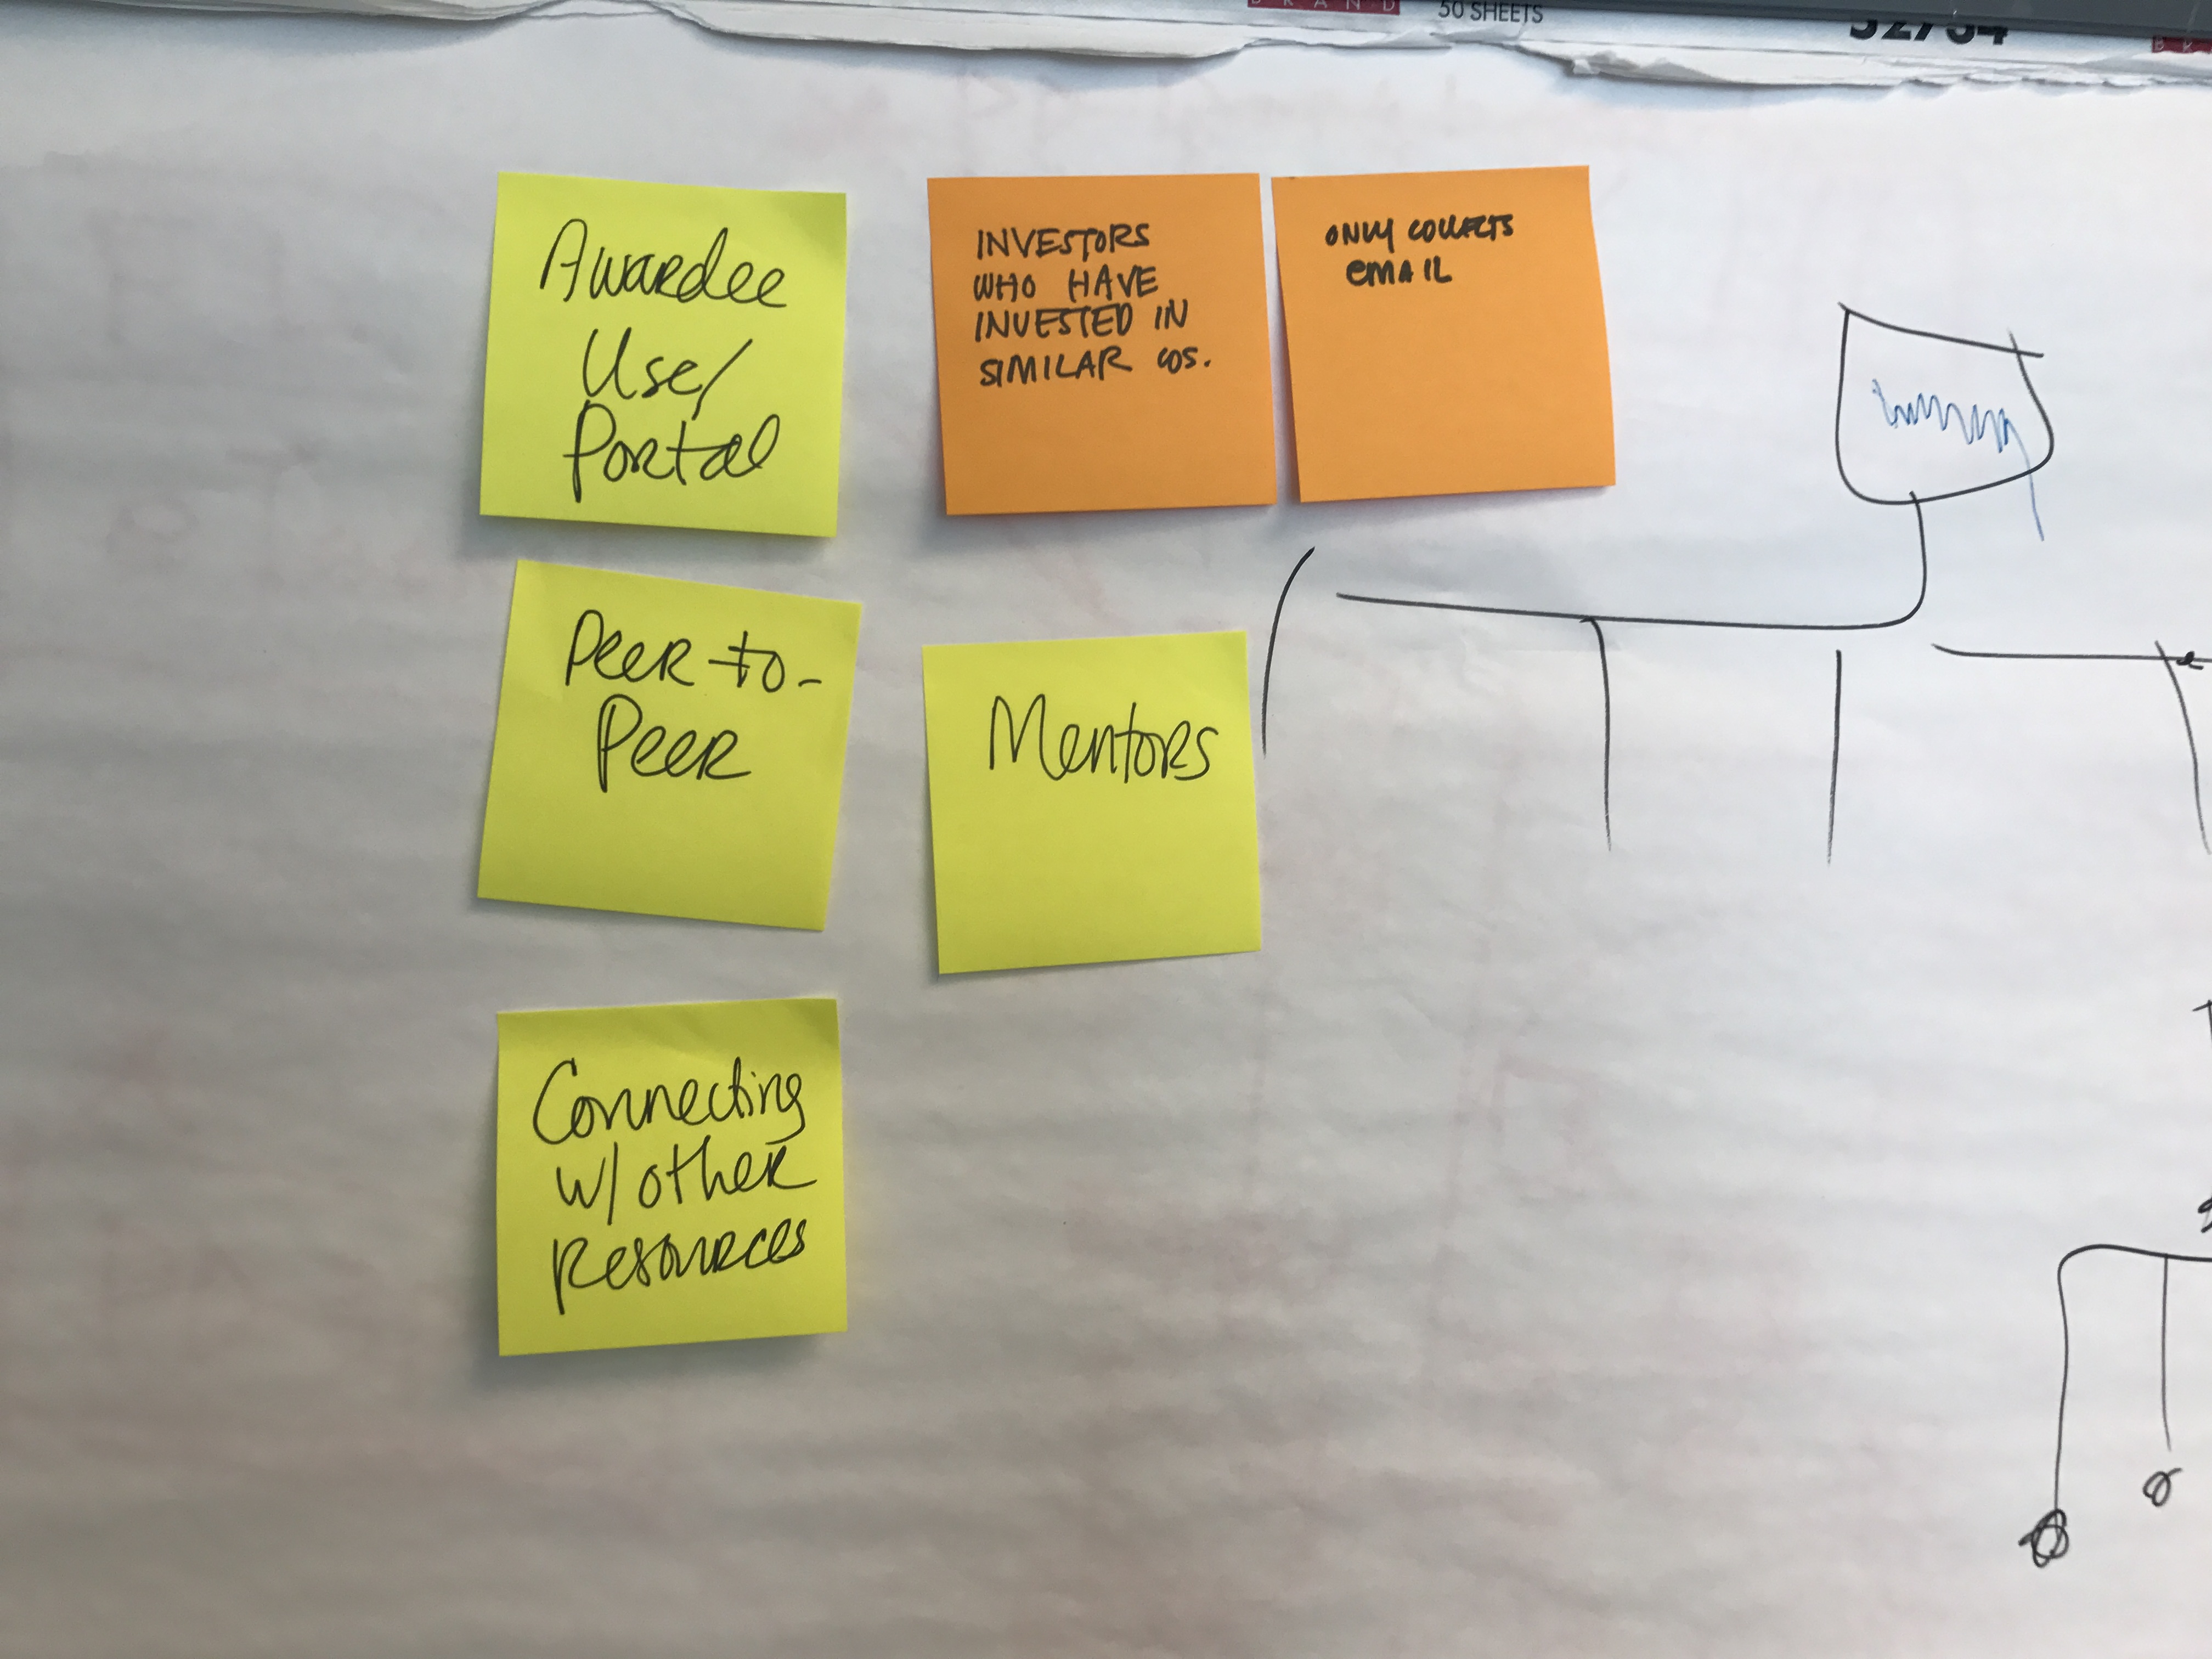 BRAND
50 SHEETS
Awardee
Use/
Portal
INVESTORS
WHO HAVE
INVESTED IN
SIMILAR COS.
ONLY COLLECTS
EMAIL
Peer-to-
Peer
Mentors
Connecting
w/ other
Resources